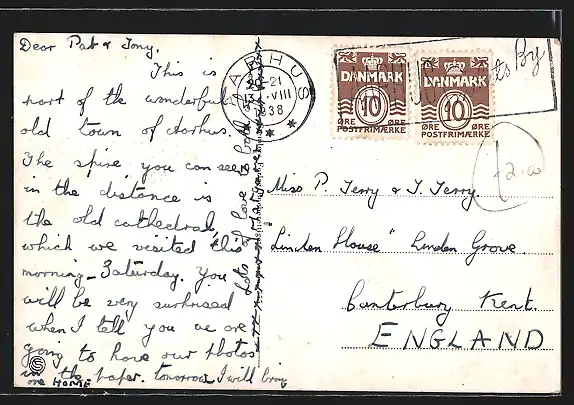 Dear Pat & Tony.
This is
part of the wonderful
old town of Aarhus.
The spire you can see
in the distance is
the old cathedral,
which we visited this
morning - Saturday. You
will be very surprised
when I tell you we are
going to have our photos
in the paper. tomorrow I will bring
one HOME
Lots of love to both
AARHUS
20-21
VIII
1938
DANMARK
10
ØRE ØRE
POSTFRIMÆRKE
DANMARK
10
ØRE ØRE
POSTFRIMÆRKE
By
Miss P. Terry & T. Terry.
Linden House" Linden Grove.
Canterbury Kent.
ENGLAND